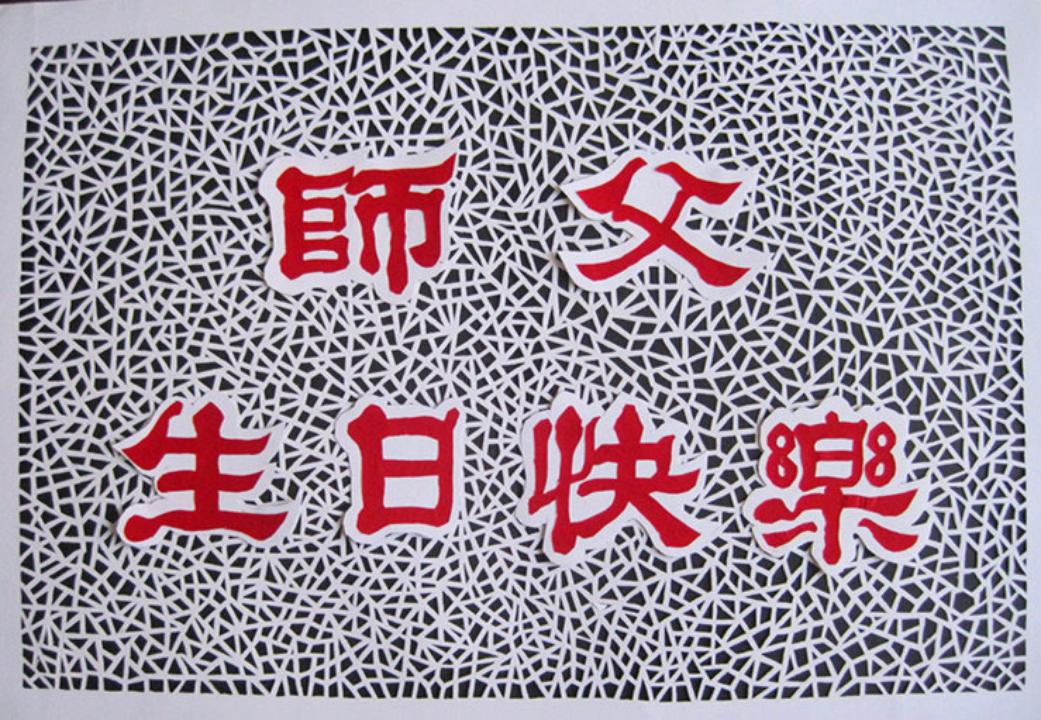 師父
生日快樂